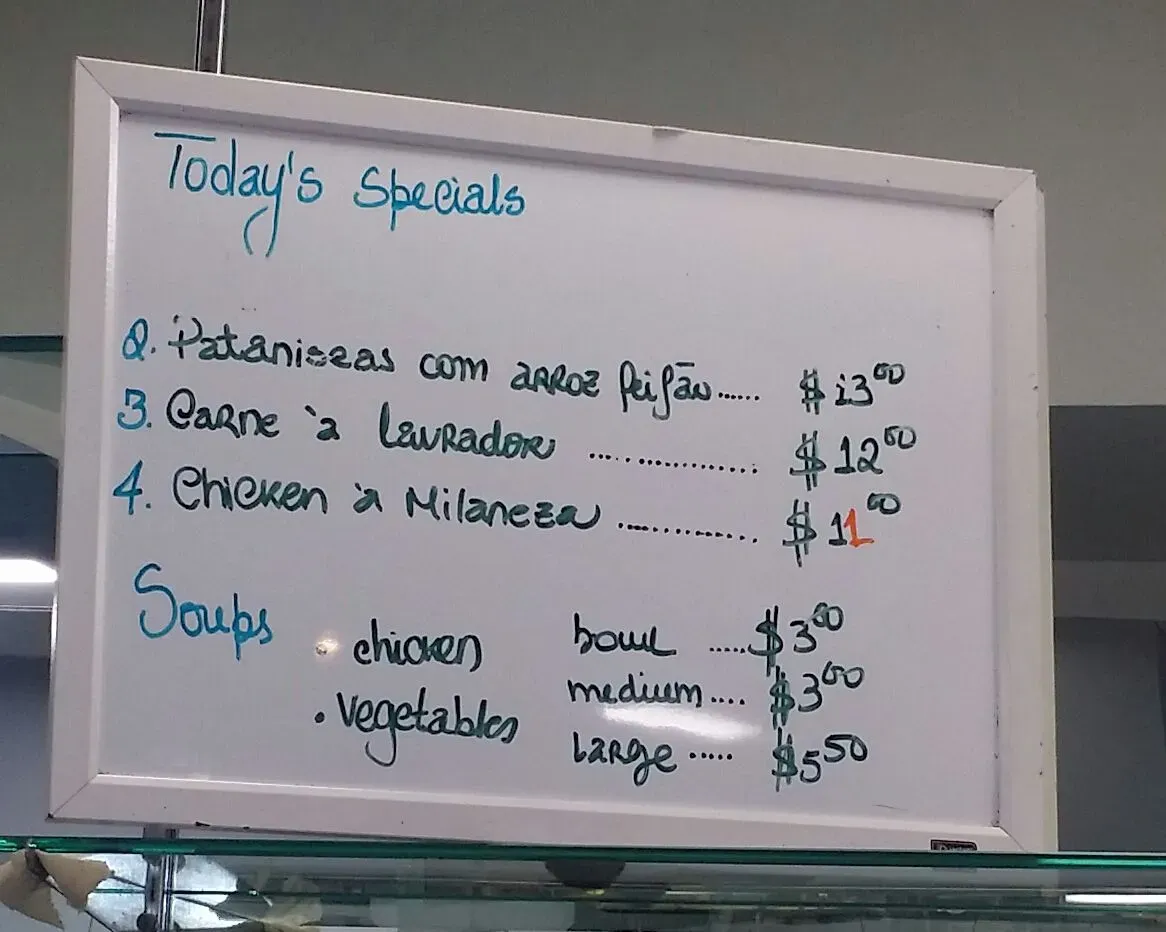 Today's Specials
2. Pataniscas com arroz feijão...... $ 13.00
3. Carne à Lavrador ................ $ 12.00
4. Chicken à Milaneza .............. $ 11.00
Soups
• chicken bowl ..... $3.00
• vegetables medium .... $3.60
large ..... $5.50